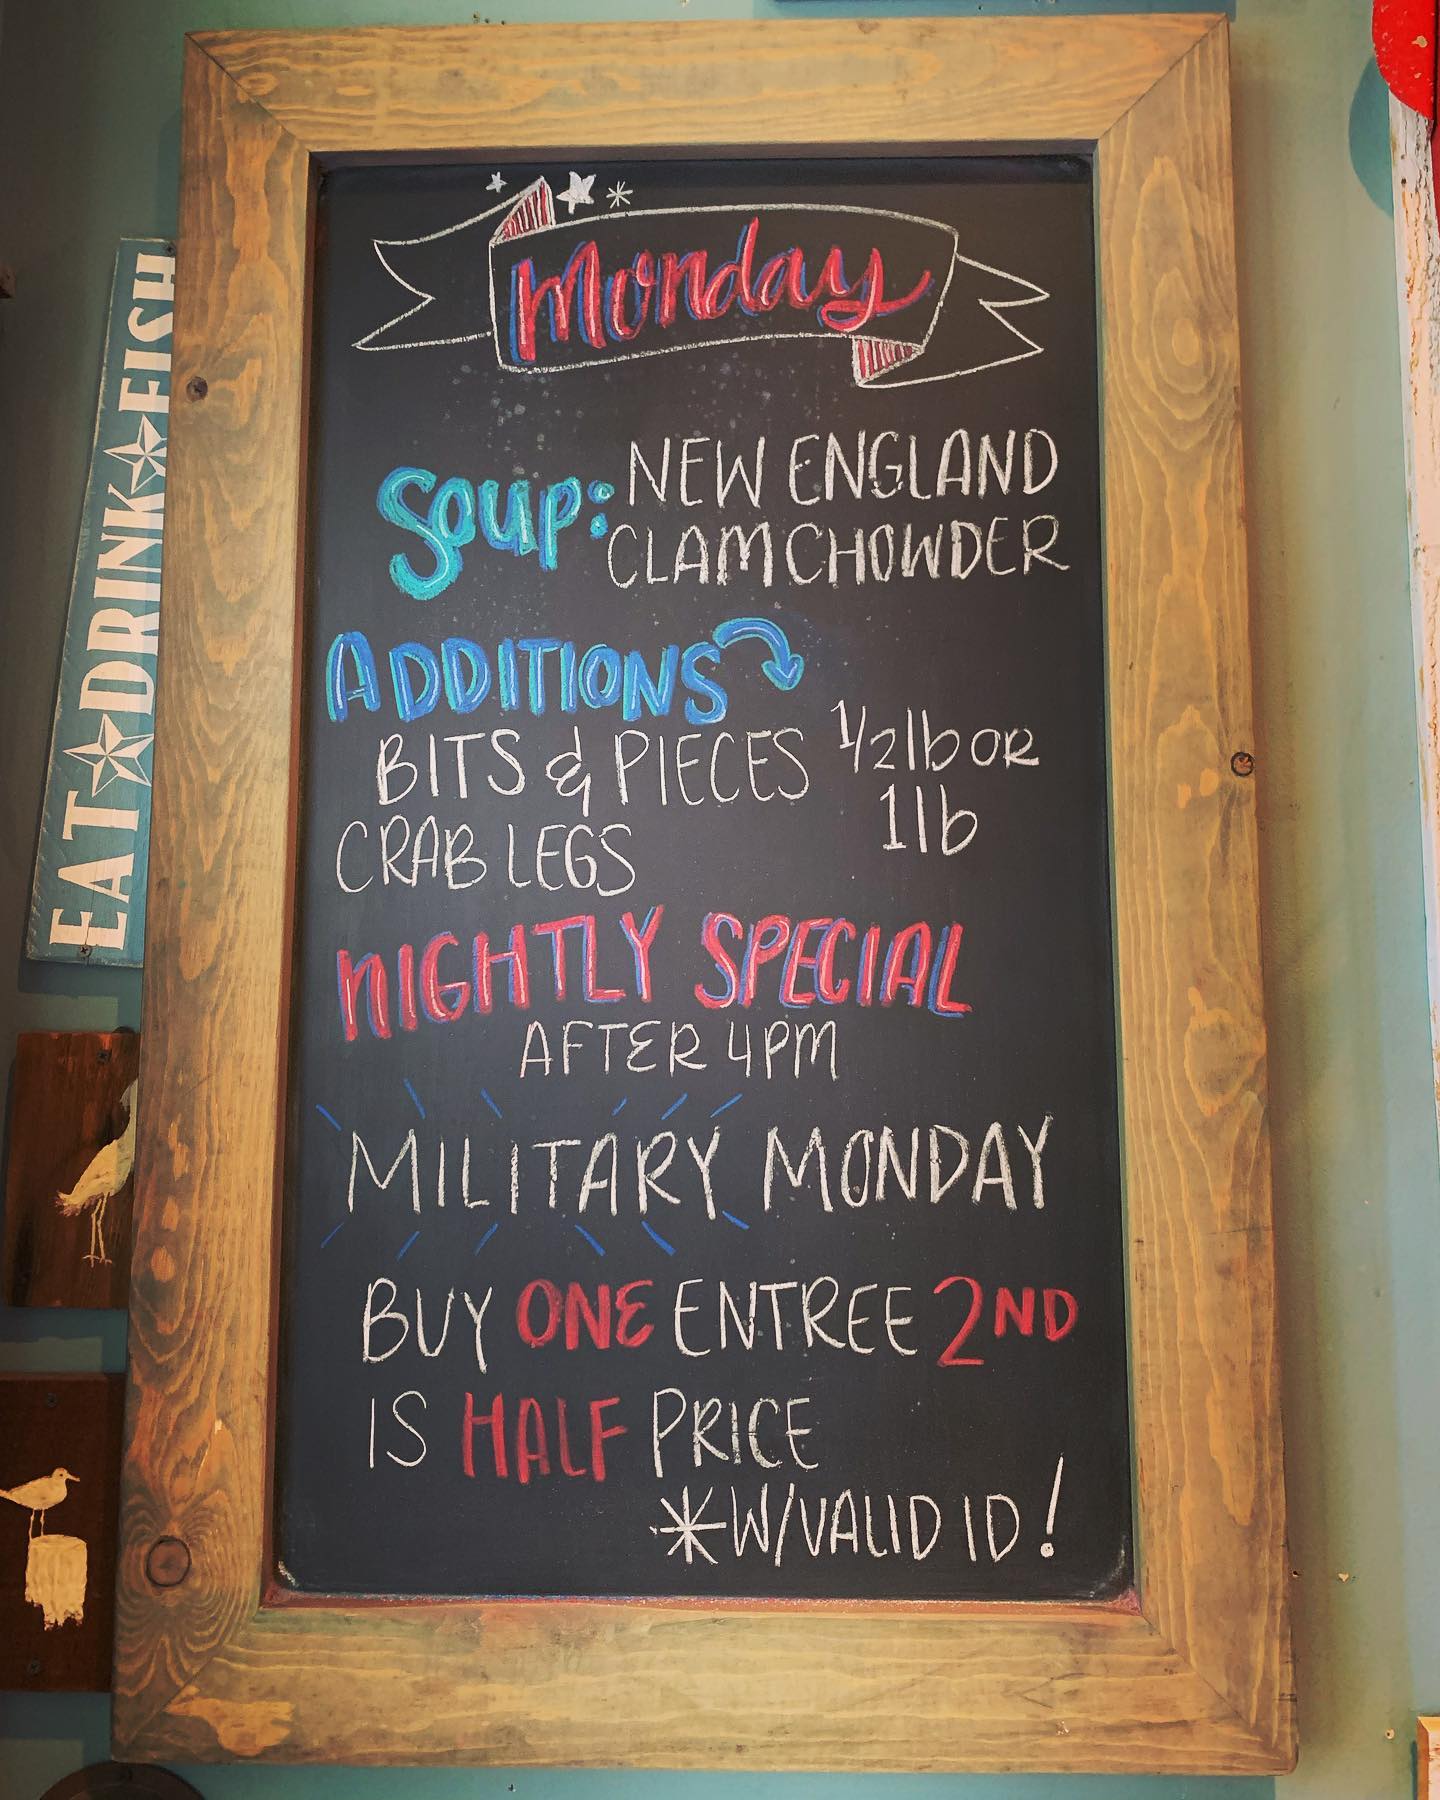 Monday
Soup: NEW ENGLAND
CLAM CHOWDER
ADDITIONS
BITS & PIECES 1/2 lb OR
1 lb
CRAB LEGS
NIGHTLY SPECIAL
AFTER 4PM
MILITARY MONDAY
BUY ONE ENTREE 2ND
IS HALF PRICE
*W/VALID ID!
EAT★DRINK★FISH